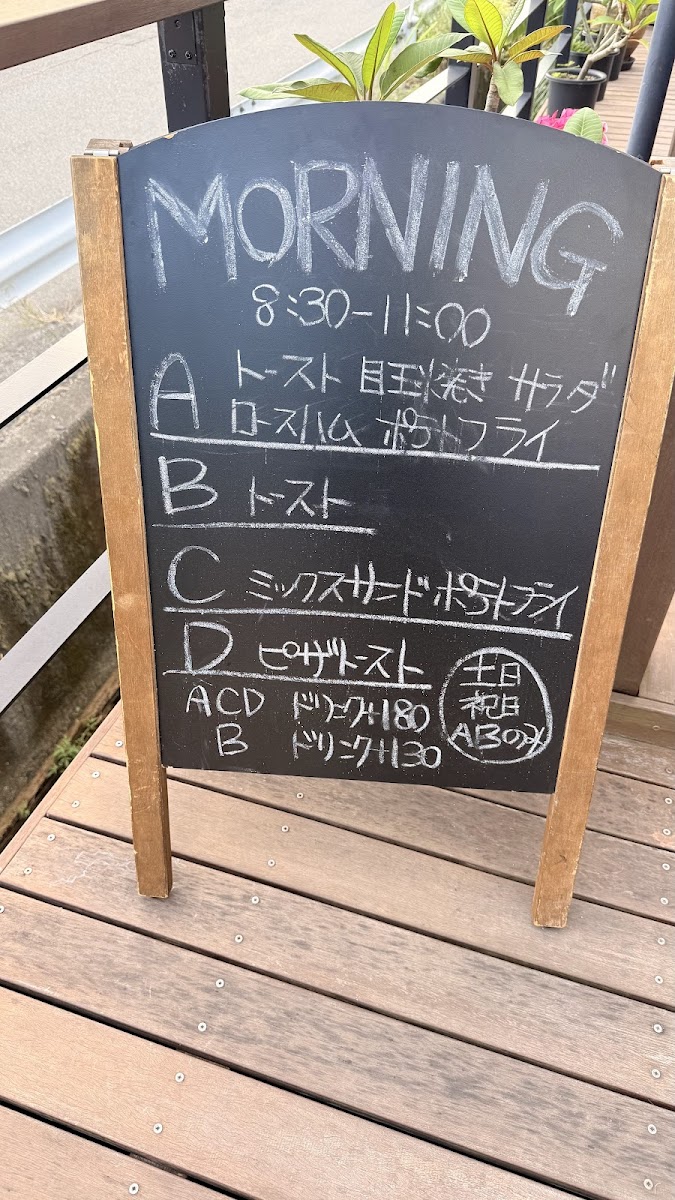 MORNING
8:30-11:00
A トースト 目玉焼き サラダ
ロースハム ポテトフライ
B トースト
C ミックスサンド ポテトフライ
D ピザトースト
ACD ドリンク+180
B ドリンク+130
土日
祝日
ABのみ